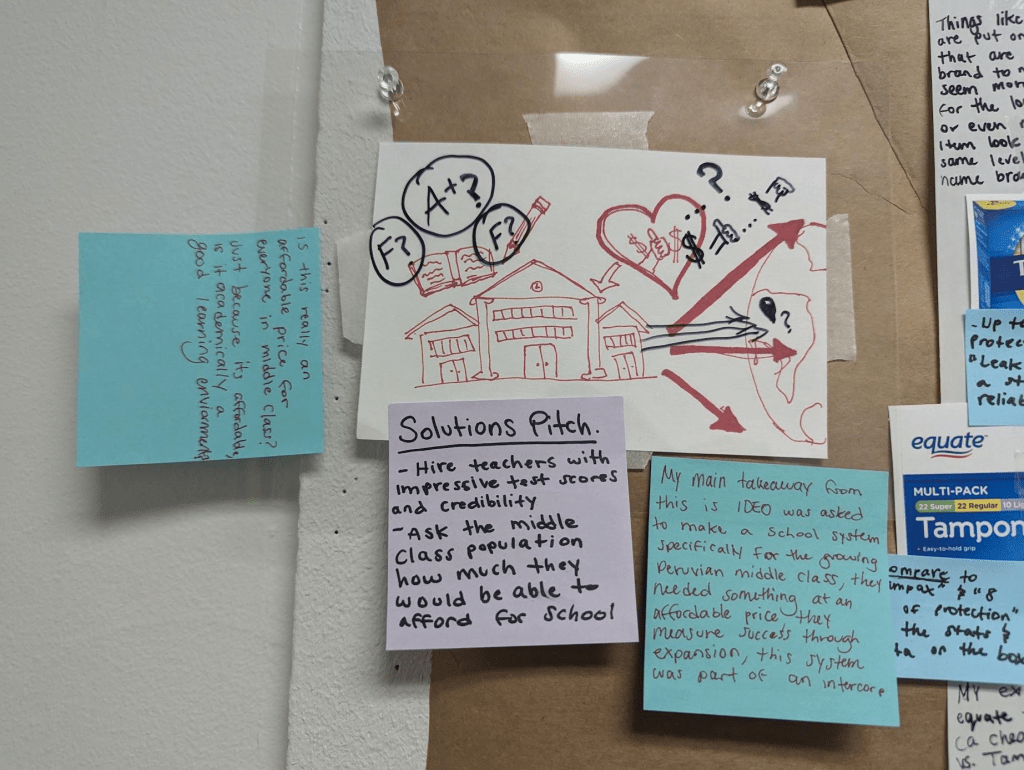 Things like
are put on
that are
brand to
seem mor
for the lo
or even
item look
same level
name bra
A+?
F?
F?
?
$ $
$
$
?
is this really an
affordable price for
everyone in middle class?
Just because its affordable,
is it academically a
good learning enviorment?
Solutions Pitch.
- Hire teachers with
impressive test scores
and credibility
- Ask the middle
class population
how much they
would be able to
afford for school
My main takeaway from
this is IDEO was asked
to make a school system
specifically for the growing
Peruvian middle class, they
needed something at an
affordable price they
measure success through
expansion, this system
was part of an intercorp
T
- Up to
Protec
"Leak
a st
reliab
equate
MULTI-PACK
22 Super 22 Regular 10 Li
Tampon
• Easy-to-hold grip
ompare to
ampax" & "8
of protection"
the stats &
ta on the box
My ex
equate
ca chea
vs. Tam